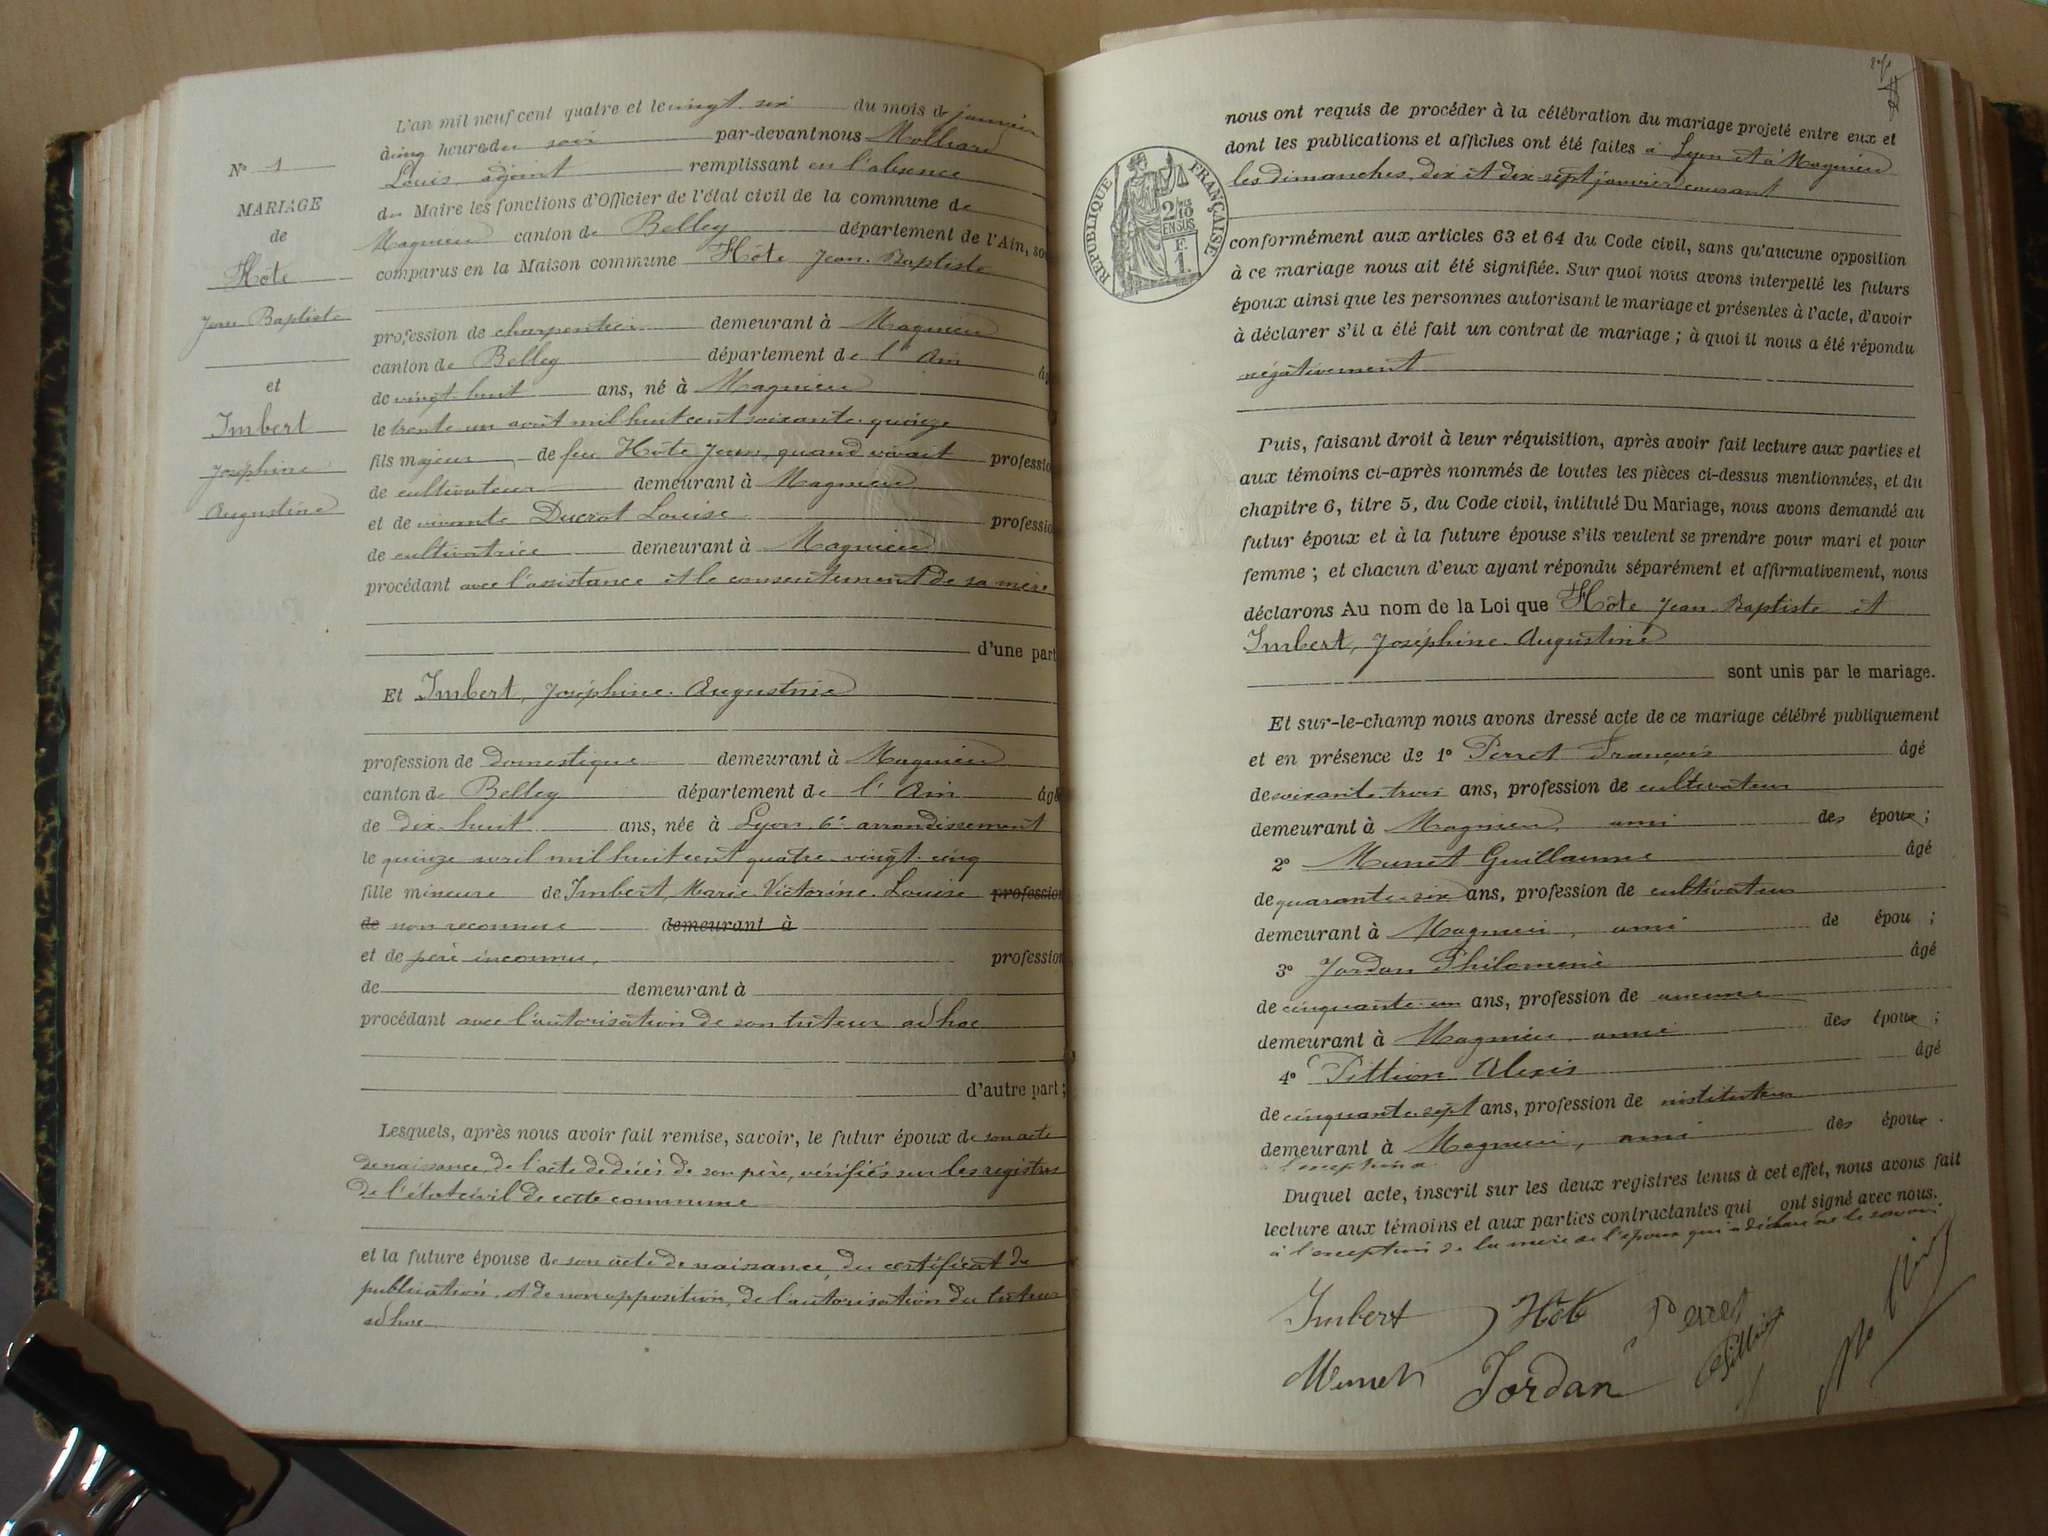 L'an mil neuf cent quatre et le vingt six du mois de janvier
à cinq heures du soir par-devant nous Molliard
Louis adjoint remplissant en l'absence
du Maire les fonctions d'Officier de l'état civil de la commune de
Magnieu canton de Belley département de l'Ain, sont
comparus en la Maison commune Hôte Jean-Baptiste
profession de charpentier demeurant à Magnieu
canton de Belley département de l'Ain âgé
de vingt-huit ans, né à Magnieu
le trente un août mil huit cent soixante-quinze
fils majeur de feu Hôte Jean, quand vivait profession
de cultivateur demeurant à Magnieu
et de vivante Ducrot Louise profession
de cultivatrice demeurant à Magnieu
procédant avec l'assistance et le consentement de sa mère
d'une part
Et Imbert, Joséphine-Augustine
profession de domestique demeurant à Magnieu
canton de Belley département de l'Ain âgé
de dix-huit ans, née à Lyon 6e arrondissement
le quinze avril mil huit cent quatre-vingt-cinq
fille mineure de Imbert, Marie Victorine Louise profession
de non reconnue demeurant à
et de père inconnu, profession
de demeurant à
procédant avec l'autorisation de son tuteur ad hoc
d'autre part;
Lesquels, après nous avoir fait remise, savoir, le futur époux de son acte
de naissance, de l'acte de décès de son père, vérifiés sur les registres
de l'état civil de cette commune
et la future épouse de son acte de naissance, du certificat de
publication, et de non opposition, de l'autorisation du tuteur
ad hoc
N° 1
MARIAGE
de
Hôte
Jean Baptiste
et
Imbert
Joséphine
Augustine
RÉPUBLIQUE FRANÇAISE
2/10
EN SUS
F.
1.
nous ont requis de procéder à la célébration du mariage projeté entre eux et
dont les publications et affiches ont été faites à Lyon et à Magnieu
les dimanches, dix et dix-sept janvier courant
conformément aux articles 63 et 64 du Code civil, sans qu'aucune opposition
à ce mariage nous ait été signifiée. Sur quoi nous avons interpellé les futurs
époux ainsi que les personnes autorisant le mariage et présentes à l'acte, d'avoir
à déclarer s'il a été fait un contrat de mariage ; à quoi il nous a été répondu
négativement
Puis, faisant droit à leur réquisition, après avoir fait lecture aux parties et
aux témoins ci-après nommés de toutes les pièces ci-dessus mentionnées, et du
chapitre 6, titre 5, du Code civil, intitulé Du Mariage, nous avons demandé au
futur époux et à la future épouse s'ils veulent se prendre pour mari et pour
femme ; et chacun d'eux ayant répondu séparément et affirmativement, nous
déclarons Au nom de la Loi que Hôte Jean-Baptiste et
Imbert, Joséphine-Augustine
sont unis par le mariage.
Et sur-le-champ nous avons dressé acte de ce mariage célébré publiquement
et en présence de 1° Perret François âgé
de soixante-trois ans, profession de cultivateur
demeurant à Magnieu, ami des époux ;
2° Munet Guillaume âgé
de quarante-six ans, profession de cultivateur
demeurant à Magnieu, ami de épou ;
3° Jordan Philomène âgé
de cinquante-un ans, profession de aucune
demeurant à Magnieu, amie des époux ;
4° Pittion Alexis âgé
de cinquante-sept ans, profession de instituteur
demeurant à Magnieu, ami des époux.
à l'exception
Duquel acte, inscrit sur les deux registres tenus à cet effet, nous avons fait
lecture aux témoins et aux parties contractantes qui ont signé avec nous.
à l'exception de la mère de l'époux qui a déclaré ne le savoir
Imbert Hôte Perret
Munet Jordan Pittion